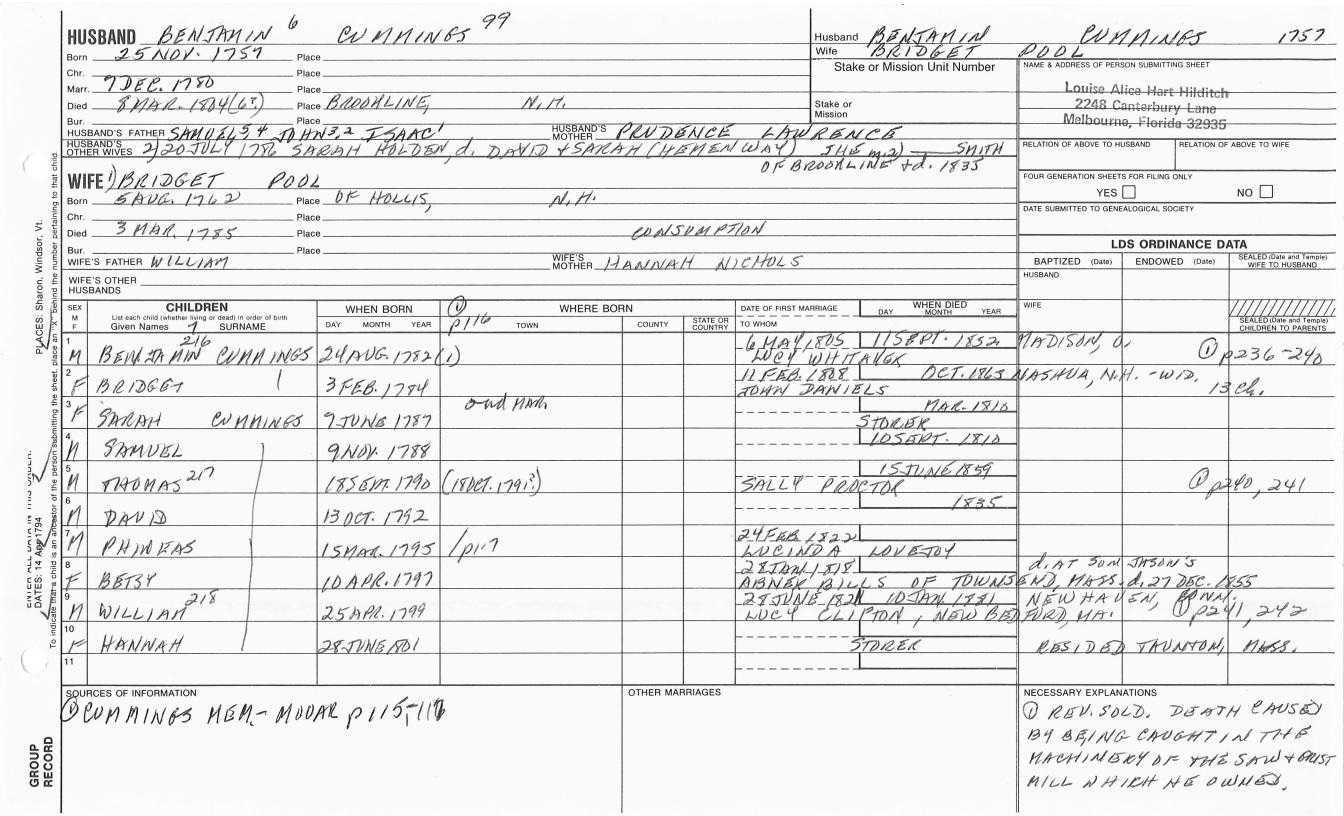 HUSBAND BENJAMIN 6 CUMMINGS 99
Born 25 NOV. 1757 Place
Chr. Place
Marr. 7 DEC. 1780 Place
Died 8 MAR. 1804(6?) Place BROOKLINE, N.H.
Bur. Place
HUSBAND'S FATHER SAMUEL5,4 JOHN3,2 ISAAC1 HUSBAND'S MOTHER PRUDENCE LAWRENCE
HUSBAND'S OTHER WIVES 2) 20 JULY 1786 SARAH HOLDEN, d. DAVID + SARAH (HEMENWAY) SHE m.2) ___ SMITH
OF BROOKLINE + d. 1835
WIFE 1) BRIDGET POOL
Born 5 AUG. 1762 Place OF HOLLIS, N.H.
Chr. Place
Died 3 MAR. 1785 Place CONSUMPTION
Bur. Place
WIFE'S FATHER WILLIAM WIFE'S MOTHER HANNAH NICHOLS
WIFE'S OTHER HUSBANDS
Husband BENJAMIN CUMMINGS 1757
Wife BRIDGET POOL
Stake or Mission Unit Number
Stake or Mission
NAME & ADDRESS OF PERSON SUBMITTING SHEET
Louise Alice Hart Hilditch
2248 Canterbury Lane
Melbourne, Florida 32935
RELATION OF ABOVE TO HUSBAND RELATION OF ABOVE TO WIFE
FOUR GENERATION SHEETS FOR FILING ONLY
YES NO
DATE SUBMITTED TO GENEALOGICAL SOCIETY
LDS ORDINANCE DATA
BAPTIZED (Date) ENDOWED (Date) SEALED (Date and Temple) WIFE TO HUSBAND
HUSBAND
WIFE
SEALED (Date and Temple) CHILDREN TO PARENTS
SEX M F
CHILDREN
List each child (whether living or dead) in order of birth
Given Names 7 SURNAME
WHEN BORN
DAY MONTH YEAR
① p116
WHERE BORN
TOWN COUNTY STATE OR COUNTRY
DATE OF FIRST MARRIAGE
TO WHOM
WHEN DIED
DAY MONTH YEAR
1 M BENJAMIN 216 CUMMINGS 24 AUG. 1782 (1) 6 MAY, 1805 11 SEPT. 1852 MADISON, O. ① p236-240
LUCY WHITAKER
2 F BRIDGET 3 FEB. 1784 11 FEB. 1808 OCT. 1863 NASHUA, N.H. - WID. 13 Ch.
JOHN DANIELS
3 F SARAH CUMMINGS 9 JUNE 1787 2nd MAR. MAR. 1810
STORER
4 M SAMUEL 9 NOV. 1788 10 SEPT. 1810
5 M THOMAS 217 18 SEPT. 1790 (18 OCT. 1791?) 15 JUNE 1859 ① p240, 241
SALLY PROCTOR
6 M DAVID 13 OCT. 1792 1835
7 M PHINEAS 15 MAR. 1795 /p117 24 FEB 1822
LUCINDA LOVEJOY
8 F BETSY 10 APR. 1797 28 JAN. 1818 d. AT SON JASON'S
ABNER BILLS OF TOWNSEND, MASS. d. 27 DEC. 1855
9 M WILLIAM 218 25 APR. 1799 28 JUNE 1821 10 JAN. 1881 NEW HAVEN, CONN. ① p241, 242
LUCY CLIFTON, NEW BEDFORD, MA.
10 F HANNAH 28 JUNE 1801 STORER RESIDED TAUNTON, MASS.
11
SOURCES OF INFORMATION
① CUMMINGS MEM. - MOOAR p115,-117
OTHER MARRIAGES
NECESSARY EXPLANATIONS
① REV. SOLD. DEATH CAUSED
BY BEING CAUGHT IN THE
MACHINERY OF THE SAW + GRIST
MILL WHICH HE OWNED.
PLACES: Sharon, Windsor, Vt.
To indicate that a child is an ancestor of the person submitting the sheet, place an "X" behind the number pertaining to that child
ENTER ALL DATA IN THIS ORDER:
DATES: 14 Apr 1794
GROUP RECORD